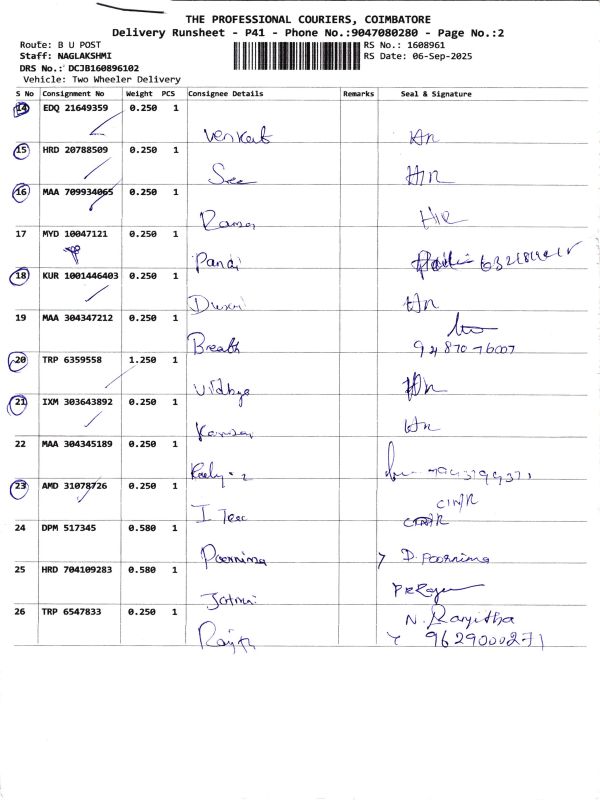 THE PROFESSIONAL COURIERS, COIMBATORE
Delivery Runsheet - P41 - Phone No.:9047080280 - Page No.:2
Route: B U POST
RS No.: 1608961
Staff: NAGLAKSHMI
RS Date: 06-Sep-2025
DRS No.: DCJB160896102
Vehicle: Two Wheeler Delivery
S No Consignment No Weight PCS Consignee Details Remarks Seal & Signature
14 EDQ 21649359 0.250 1
Venkat
15 HRD 20788509 0.250 1
See
16 MAA 709934065 0.250 1
17 MYD 10047121 0.250 1
Pandi
18 KUR 1001446403 0.250 1
19 MAA 304347212 0.250 1
94870 76007
20 TRP 6359558 1.250 1
Vidhya
21 IXM 303643892 0.250 1
22 MAA 304345189 0.250 1
23 AMD 31078726 0.250 1
24 DPM 517345 0.580 1
Poornima D. Poornima
25 HRD 704109283 0.580 1
26 TRP 6547833 0.250 1
N. Ranjitha
9629000271